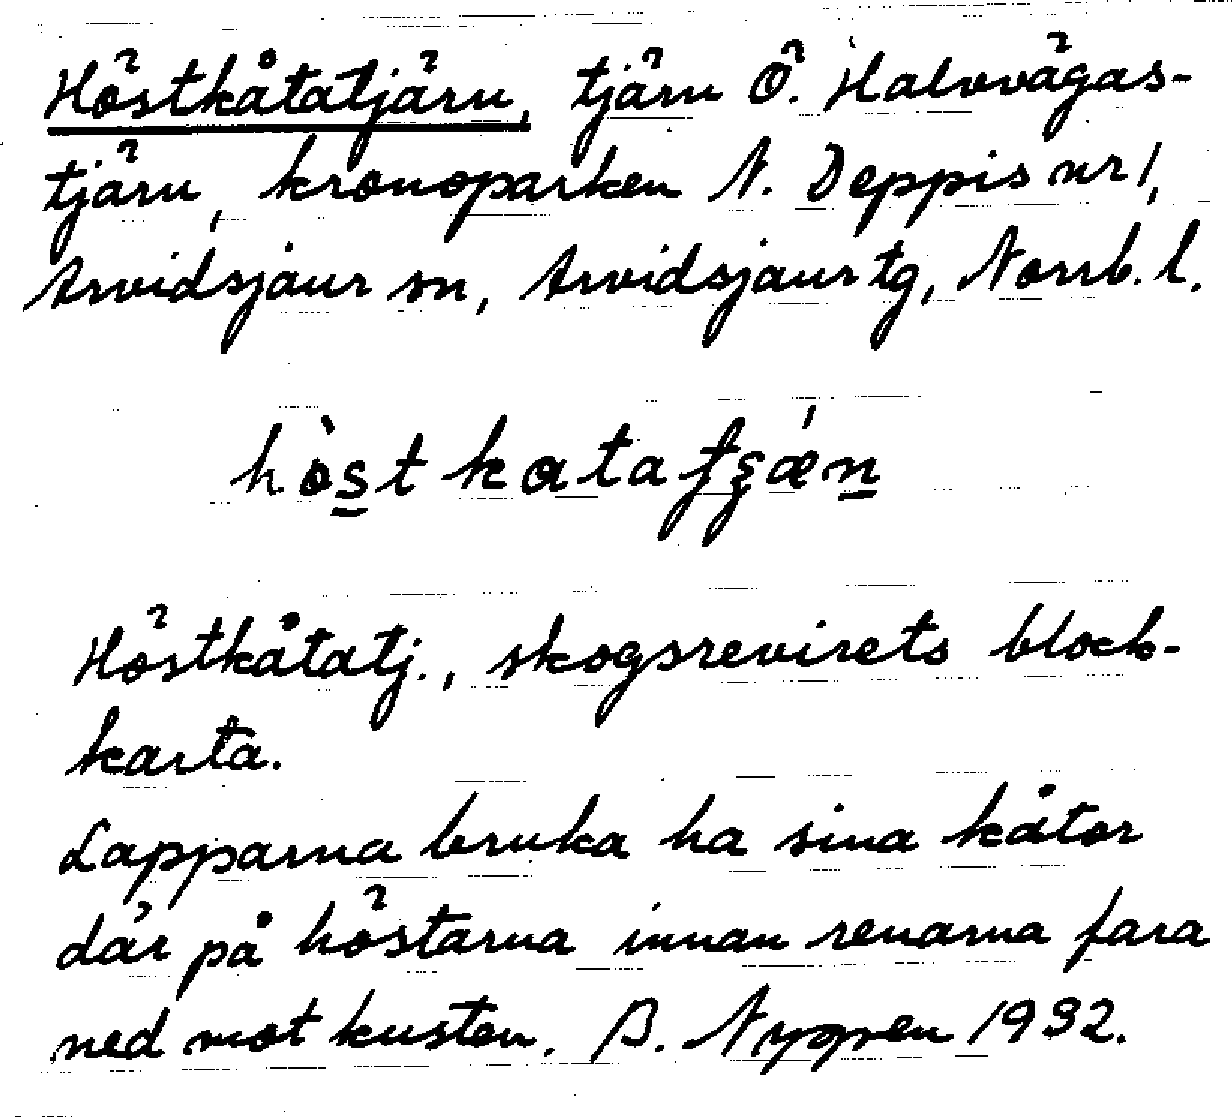 Höstkåtatjärn, tjärn Ö. Halvvägas-
tjärn, kronoparken N. Deppis nr 1,
Arvidsjaur sn, Arvidsjaur tg, Norrb. l.
Höstkåtatj., skogsrevirets block-
karta.
Lapparna bruka ha sina kåtor
där på höstarna innan renarna fara
ned mot kusten. B. Nygren 1932.